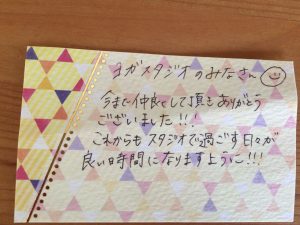 ヨガスタジオのみなさん
今まで仲良くして頂きありがとう
ございました!!!
これからもスタジオで過ごす日々が
良い時間になりますように!!!